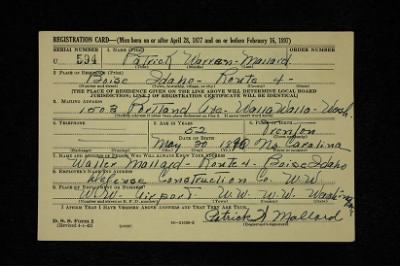 REGISTRATION CARD—(Men born on or after April 28, 1877 and on or before February 16, 1897)
SERIAL NUMBER 1. NAME (Print)
U 594 Patrick Warren Mallard
2. PLACE OF RESIDENCE (Print)
Boise Idaho - Route 4 -
[THE PLACE OF RESIDENCE GIVEN ON THE LINE ABOVE WILL DETERMINE LOCAL BOARD
JURISDICTION; LINE 2 OF REGISTRATION CERTIFICATE WILL BE IDENTICAL]
3. MAILING ADDRESS
1508 Portland Ave - Walla Walla - Wash.
4. TELEPHONE 5. AGE IN YEARS
52 Trenton
DATE OF BIRTH
May 30 1890 No. Carolina
7. NAME AND ADDRESS OF PERSON WHO WILL ALWAYS KNOW YOUR ADDRESS
Walter Mallard - Route 4 - Boise Idaho
8. EMPLOYER'S NAME AND ADDRESS
Defense Construction Co. W.W.
9. PLACE OF EMPLOYMENT OR BUSINESS
W.W. Airport - W.W. W.W. Wash.
I AFFIRM THAT I HAVE VERIFIED ABOVE ANSWERS AND THAT THEY ARE TRUE.
D. S. S. Form 1
(Revised 4-1-42)
Patrick W Mallard